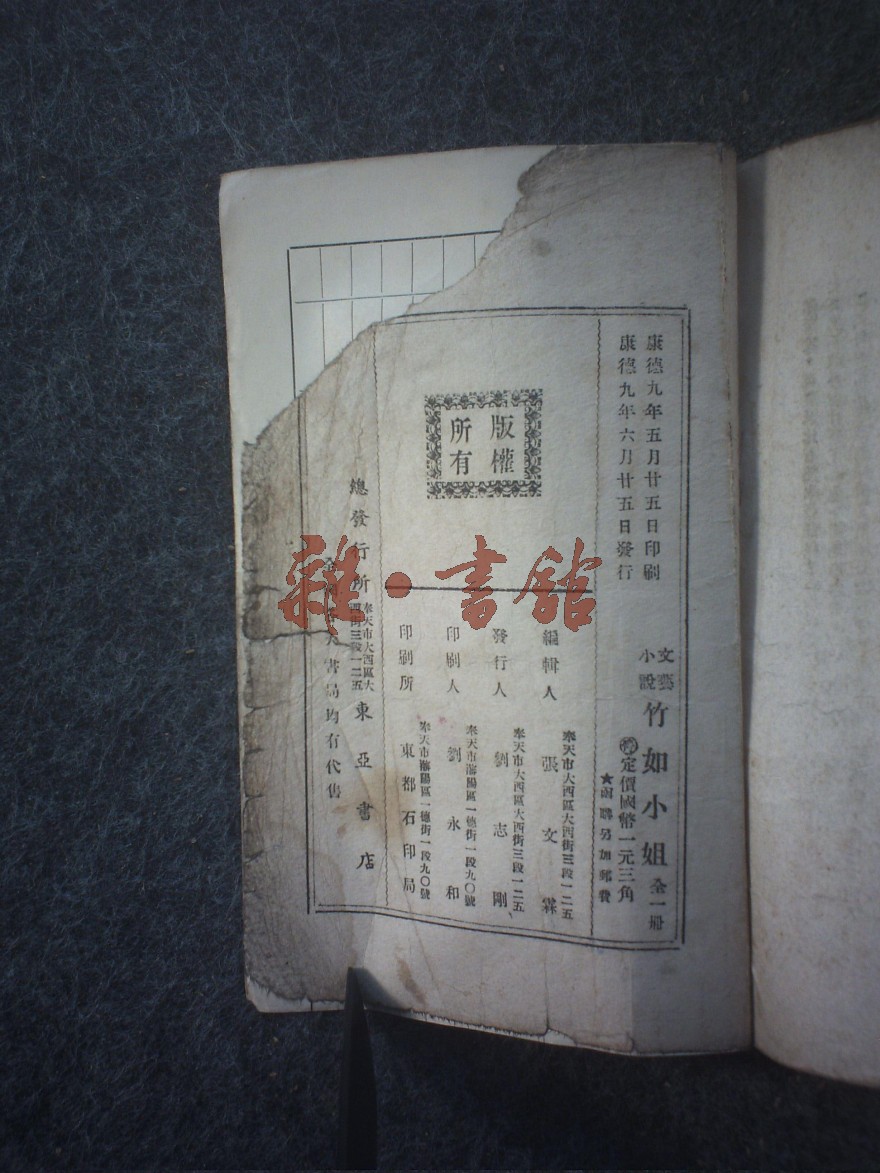 康德九年五月廿五日印刷
康德九年六月廿五日發行
文藝小說 竹如小姐 全一冊
定價國幣一元三角
★函購另加郵費
版權所有
編輯人 奉天市大西區大西街三段一二五 張文霖
發行人 奉天市大西區大西街三段一二五 劉志剛
印刷人 奉天市瀋陽區一德街一段九〇號 劉永和
印刷所 奉天市瀋陽區一德街一段九〇號 東都石印局
總發行所 奉天市大西區大西街三段一二五 東亞書店
全 大書局均有代售
雜·書館